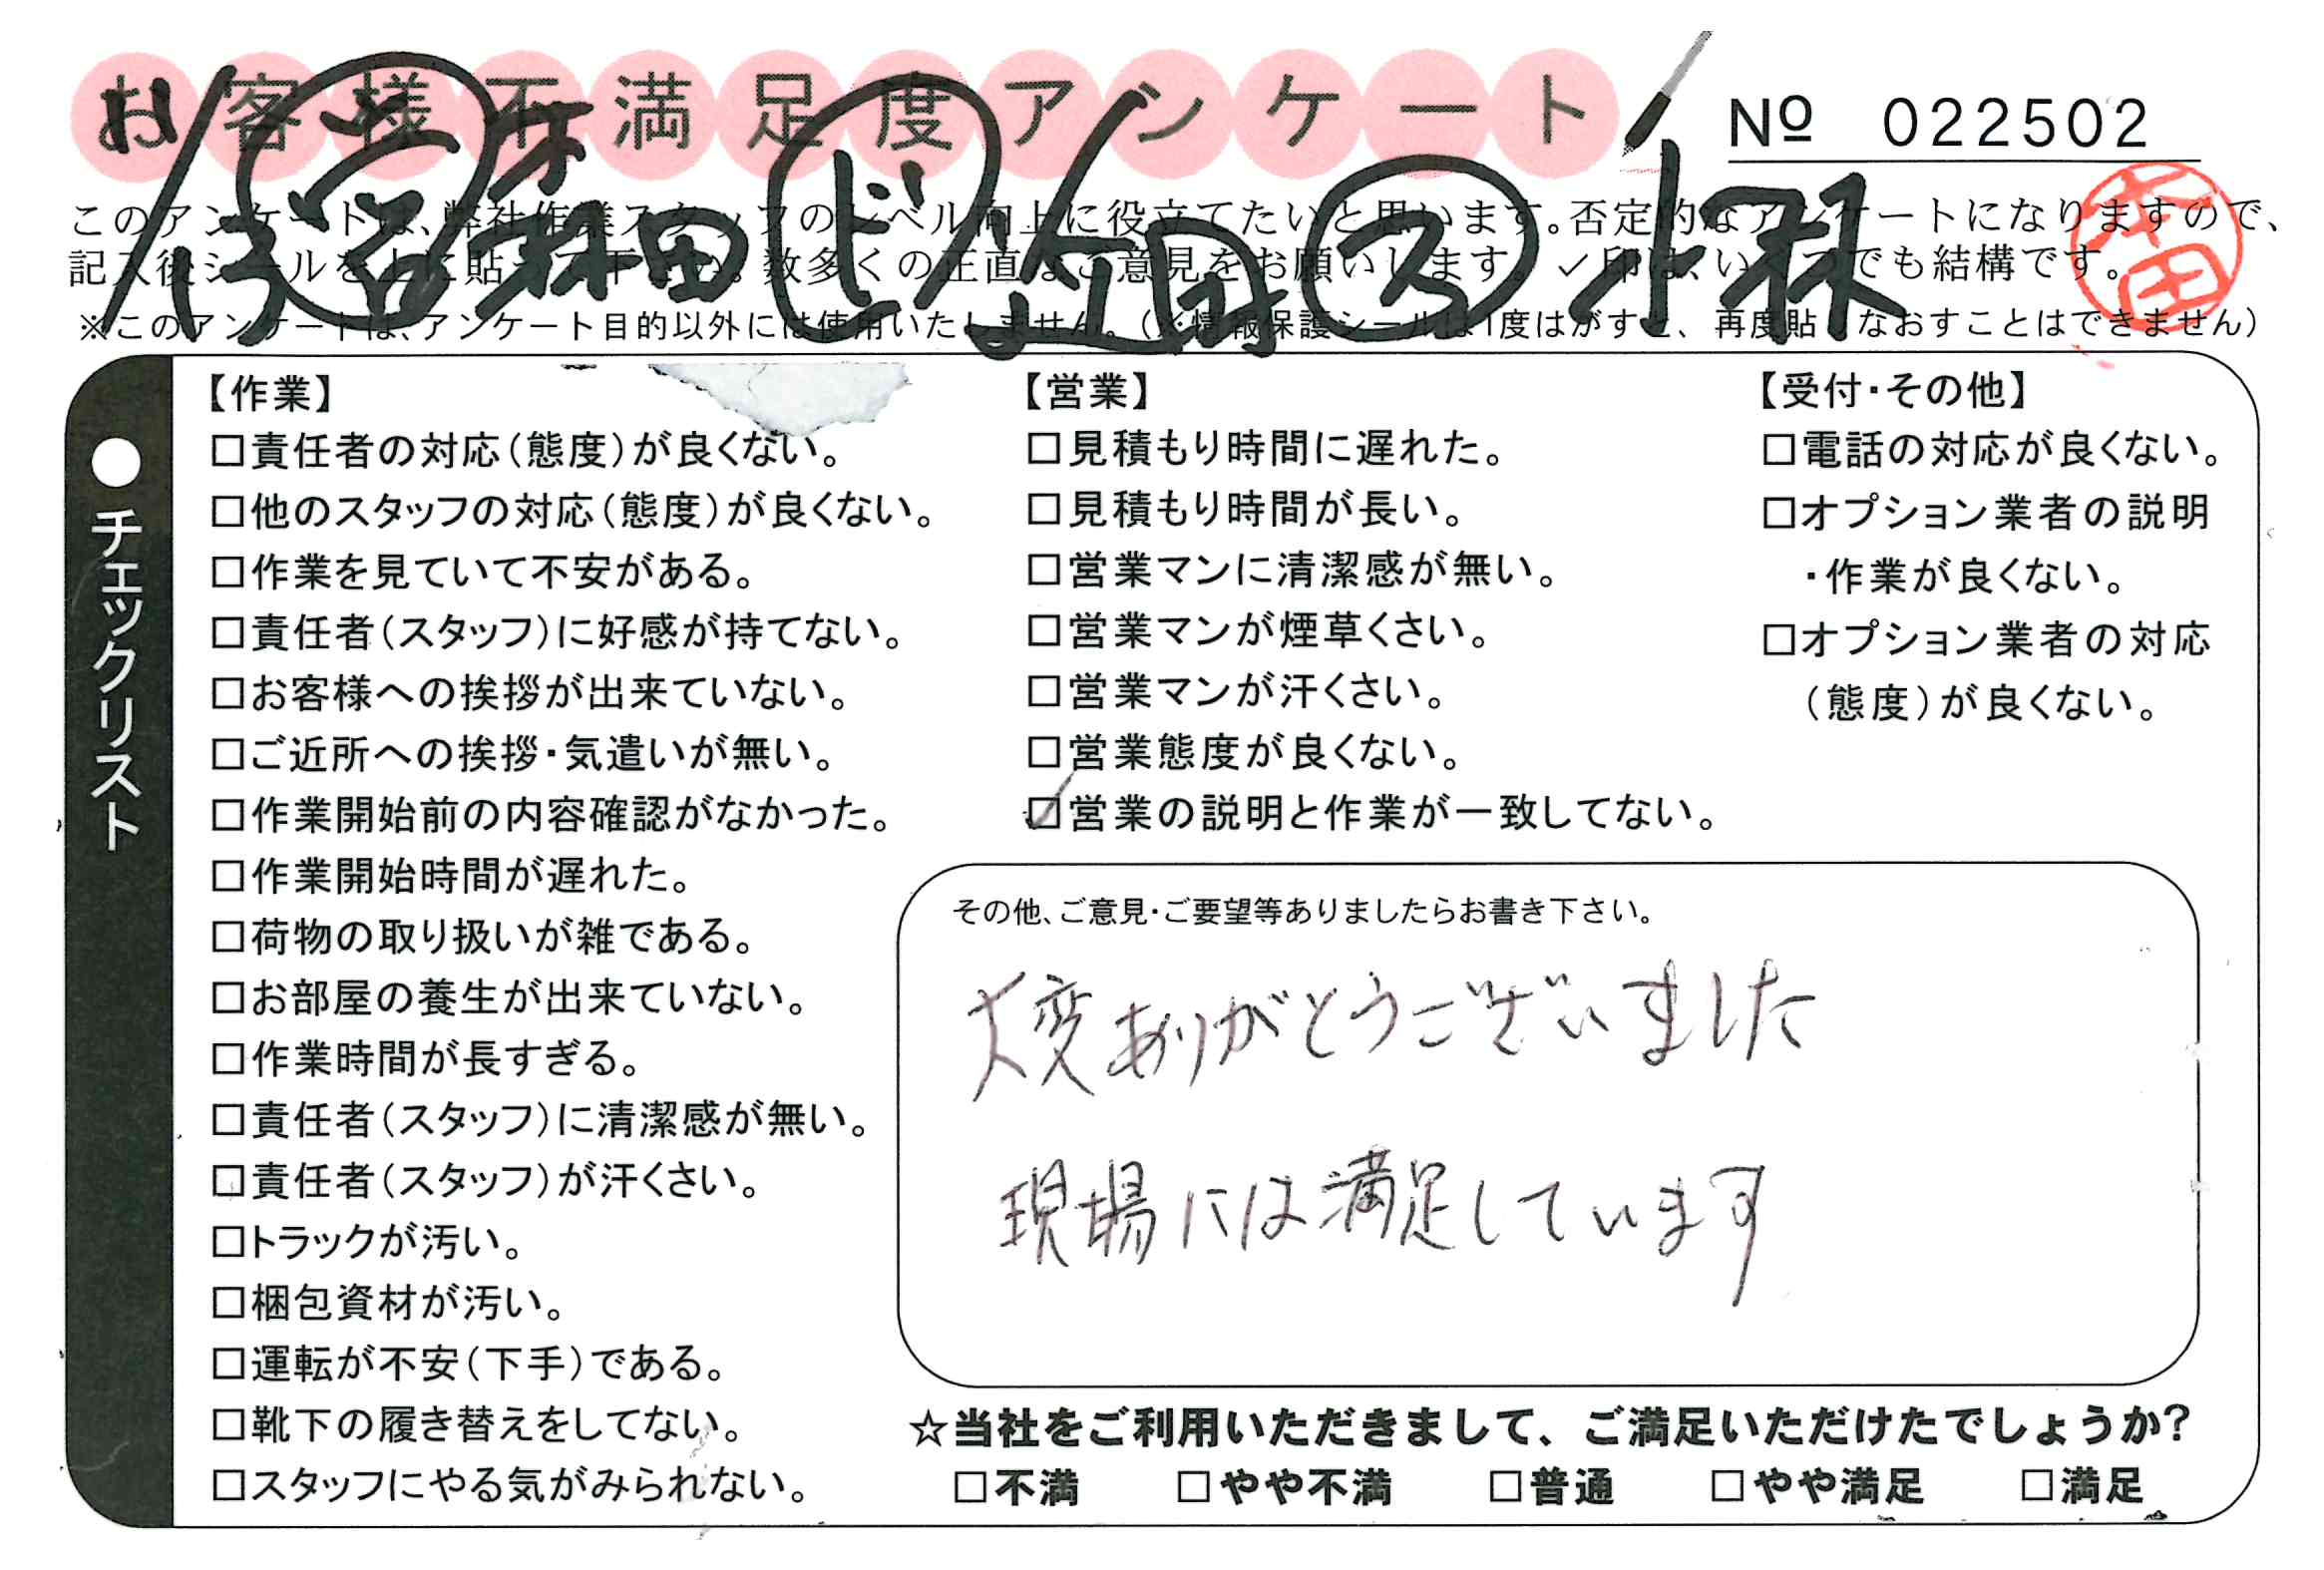 お客様不満足度アンケート
№ 022502
このアンケートは、弊社作業スタッフのレベル向上に役立てたいと思います。否定的なアンケートになりますので、
記入後シールを上に貼って下さい。数多くの正直なご意見をお願いします。✓印は、いくつでも結構です。
※このアンケートは、アンケート目的以外には使用いたしません。（※情報保護シールは1度はがすと、再度貼りなおすことはできません）
小林
本田
●チェックリスト
【作業】
□責任者の対応（態度）が良くない。
□他のスタッフの対応（態度）が良くない。
□作業を見ていて不安がある。
□責任者（スタッフ）に好感が持てない。
□お客様への挨拶が出来ていない。
□ご近所への挨拶・気遣いが無い。
□作業開始前の内容確認がなかった。
□作業開始時間が遅れた。
□荷物の取り扱いが雑である。
□お部屋の養生が出来ていない。
□作業時間が長すぎる。
□責任者（スタッフ）に清潔感が無い。
□責任者（スタッフ）が汗くさい。
□トラックが汚い。
□梱包資材が汚い。
□運転が不安（下手）である。
□靴下の履き替えをしてない。
□スタッフにやる気がみられない。
【営業】
□見積もり時間に遅れた。
□見積もり時間が長い。
□営業マンに清潔感が無い。
□営業マンが煙草くさい。
□営業マンが汗くさい。
□営業態度が良くない。
☑営業の説明と作業が一致してない。
【受付・その他】
□電話の対応が良くない。
□オプション業者の説明
・作業が良くない。
□オプション業者の対応
（態度）が良くない。
その他、ご意見・ご要望等ありましたらお書き下さい。
大変ありがとうございました
現場には満足しています
☆当社をご利用いただきまして、ご満足いただけたでしょうか？
□不満 □やや不満 □普通 □やや満足 □満足